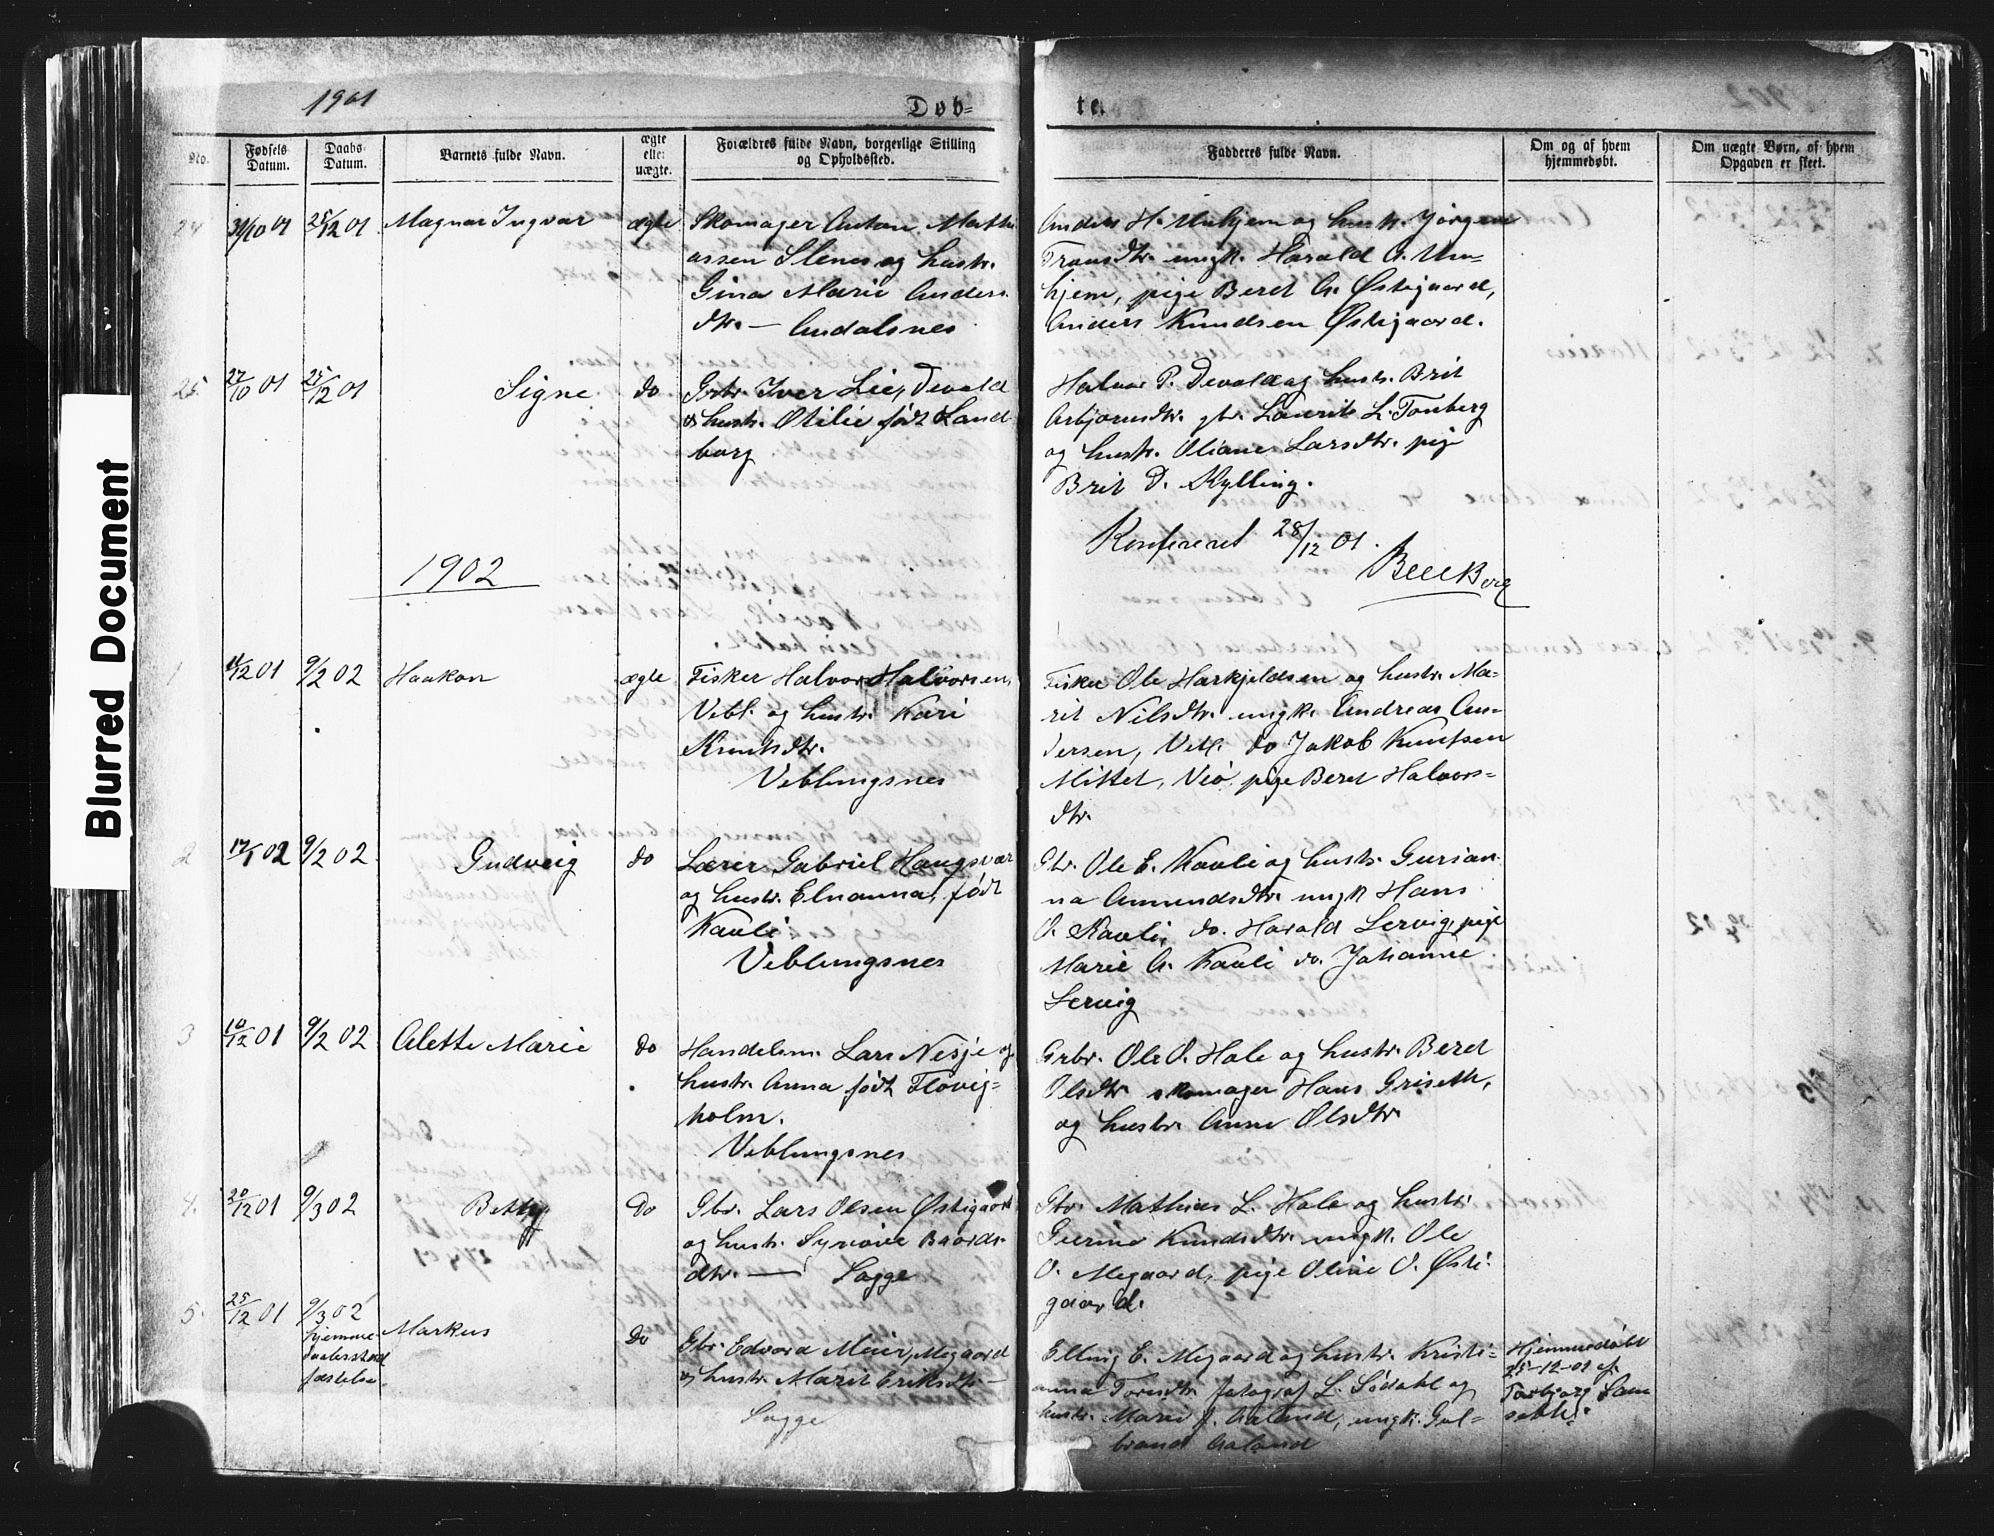 Blurred Document
1901
Døb=
te.
No.
Fødsels Datum.
Daabs= Datum.
Barnets fulde Navn.
ægte elle: uægte.
Forældres fulde Navn, borgerlige Stilling og Opholdssted.
Fadderes fulde Navn.
Om og af hvem hjemmedøbt.
Om uægte Børn, af hvem Opgaven er skeet.
24 31/10 01 25/12 01 Magnar Ingvar ægte Skomager Anton Matthi
assen Stenes og hustr.
Gina Marie Anders
dtr. — Andalsnes
Anders H. Unhjem og hustr. Jørgen
Transdtr. ungk. Harald A. Un=
hjem, pige Beret A. Østigaard,
Anders Knudsen Østigaard.
25. 27/10 01 25/12 01 Signe do Grbr. Iver Lie, Devold
og hustr. Otilie født Land
borg
Halvor P. Devold og hustr. Brit
Asbjørnsdtr. gbr. Laurits L. Tonberg
og hustr. Oliane Larsdtr. pige
Brit D. Kylling.
Konfereret 28/12 01.
1902
1 11/12 01 9/2 02 Haakon ægte Fisker Halvor Halvorsen,
Vebl. og hustr. Kari
Knutsdtr.
Veblungsnes
Fisker Ole Harkjeldsen og hustr. Ma=
rit Nilsdtr. ungk. Andreas An=
dersen, Vebl. do Jakob Knutsen
Mittet, Veø, pige Beret Halvors=
dtr.
2 17/1 02 9/2 02 Gudveig do Lærer Gabriel Haugsvær
og hustr. Elnanna, født
Kavli
Veblungsnes
Gbr. Ole E. Kavli og hustr. Gurian
na Amundsdtr. ungk Hans
O. Kavli, do. Harald Lervig, pige
Marie A. Kavli do. Johanne
Lervig
3 10/12 01 9/2 02 Alette Marie do Handelsm. Lars Nesje og
hustr. Anna født Flovig=
holm.
Veblungsnes
Grbr. Ole O. Hole og hustr. Beret
Olsdtr. skomager Hans Griseth,
og hustr. Anne Olsdtr
4. 20/12 01 9/3 02 Betty do Gbr. Lars Olsen Østigaard
og hustr. Synnøve Baards
dtr. — Sogge
Gbr. Mathias L. Hole og hustr.
Gurine Knudsdtr. ungk. Ole
O. Megaard, pige Oline O. Østi=
gaard.
5. 25/12 01 9/3 02
hjemme
daabsstad
fæstelse.
Markus do Gbr. Edvard Meier, Megaard
og hustr. Marit Eriksdtr —
Sogge
Elling E. Megaard og hustr. Kristi=
anna Toresdtr. fotograf L. Sødahl og
hustr. Marie f. Aaland, ungk. Gul=
brand Aaland
Hjemmedøbt
25-12-01 af
Torbjørg Sam